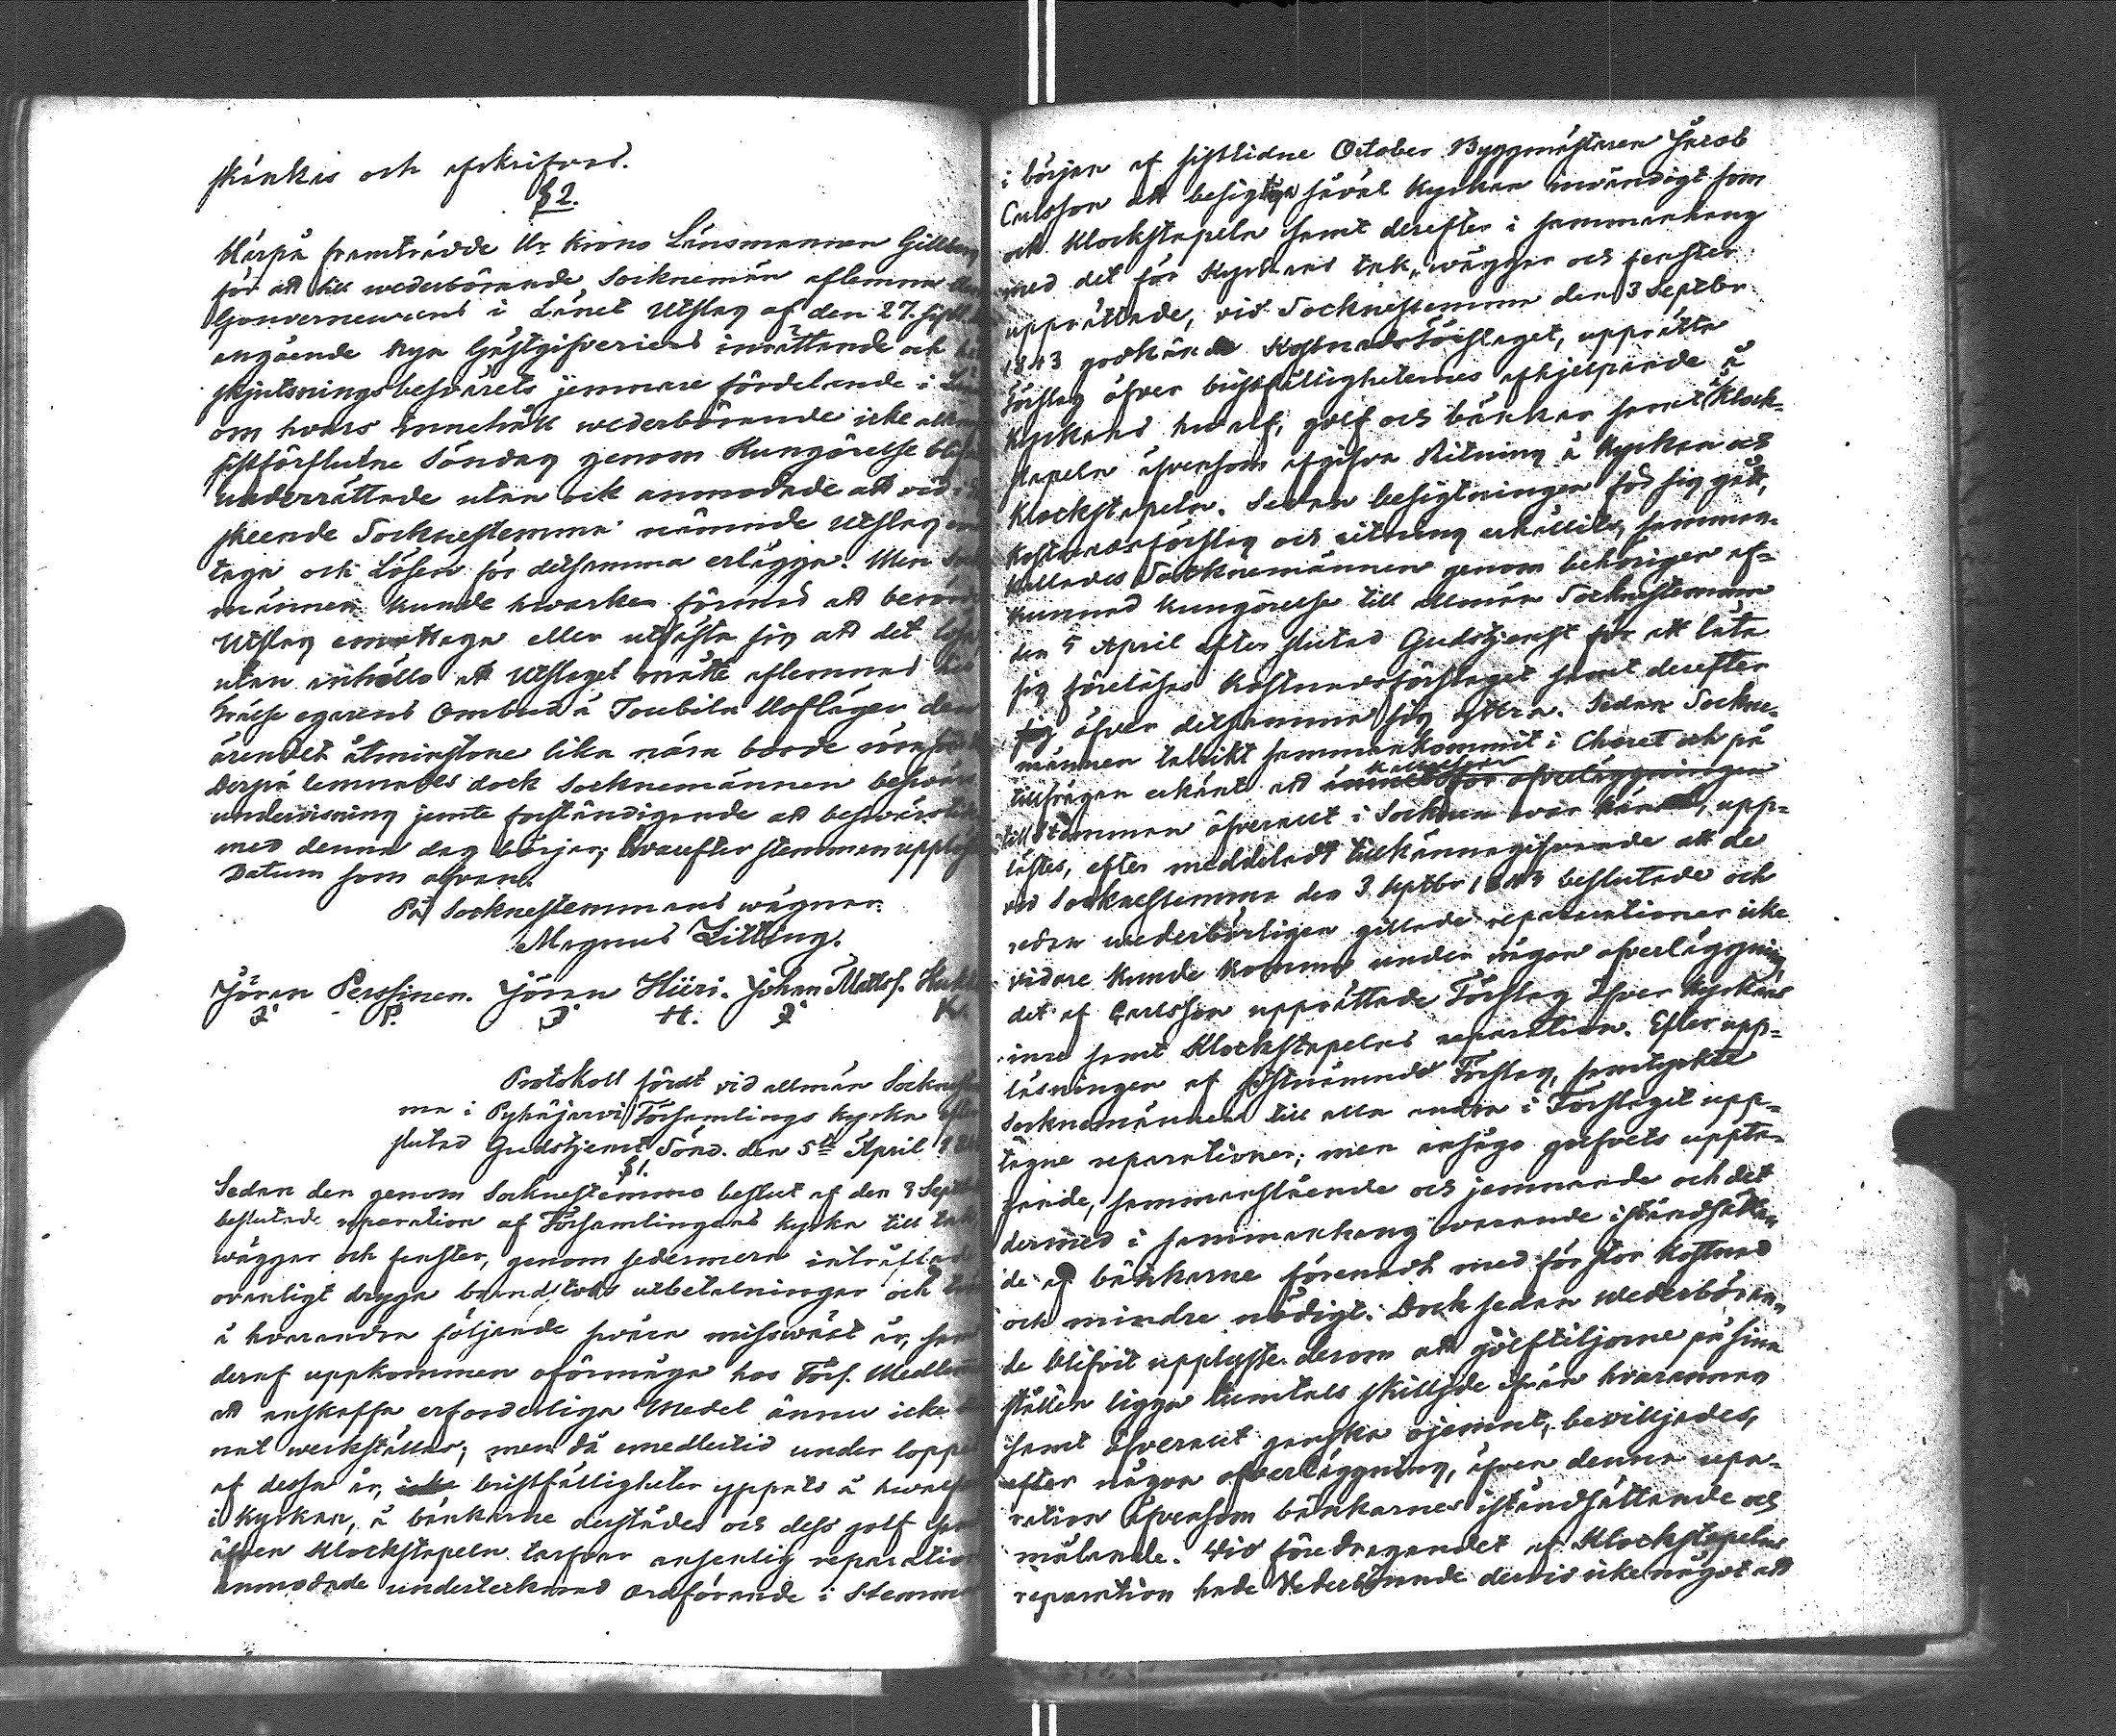 skänkas och afskrifvas.
§ 2.
Härpå framträdde Hr Krono Länsmannen Gillberg
för att till wederbörande Socknemän aflemna
Gouverneurens i Länet Utslag af den 27. sistl.
angående nya Gästgifveriers inrättande och
skjutsningsbesvärets jemnare fördelande i
om hvars innehåll wederbörande icke
sistförflutne Söndag genom Kungörelse
underrättade utan ock anmodade att vid
skeende Socknestemma nämnde Utslag
taga och Lösen för detsamma erlägga. Men
männen kunde hwarken förmås att
Utslag emottaga eller utfästa sig att det lösa,
utan anhöllo att Utslaget måtte aflemnas
egarens Ombud å Toubila Hofläger
ärendet åtminstone lika nära borde
Derpå lemnades dock Socknemännen besvärs
undervisning jemte förständigande att besvärstiden
med denna dag börjar; hvarefter stemman upplöstes
Datum som ofvan.
På Socknestemmans wägnar:
Magnus Zitting.
Jöran Perssinen. Jöran Hiiri. Johan Mattss.
J P. J H. J
Protokoll fördt vid allmän
ma i Pyhäjärvi Församlings kyrka efter
slutad Gudstjenst Sönd. den 5te April
§ 1.
Sedan den genom Socknestemmo beslut af den 3 Septbr
beslutade reparation af Församlingens kyrka till tak
wäggar och fenster, genom sedermera inträffade
ovanligt dryga brandstods utbetalningar och
å hvarandra följande svåra missväxt år, samt
deraf uppkommen oförmåga hos Förs. Medlemmar
att anskaffa erforderliga Medel ännu icke
nat werkställas; men då emedlertid under loppet
af dessa år, bristfälligheter yppats å hwalfvet
i kyrkan, å bänkarne derstädes och dess golf samt
äfven Klockstapeln tarfvar ansenlig reparation
anmodade undertecknad Ordförande i Stemman
i början af sistlidne October Byggmästaren Jacob
Carlsson att besigtiga såväl Kyrkan invändigt som
ock Klockstapeln samt derefter i sammanhang
med det för Kyrkans tak, wäggar och fenster
upprättade, vid Socknestemma den 3 Septbr
1843 godkände Kostnadsförslaget, upprätta
Förslag öfver bristfälligheternes afhjelpande å
Kyrkans hwalf, golf och bänkar samt å Klock-
stapeln äfvensom afgifva Ritning å Kyrkan och
Klockstapeln. Sedan besigtningen för sig gått,
Kostnadsförslag och ritning erhållits, samman-
kallades Socknemännen genom behörigen af-
kunnad kungörelse till allmän Socknestemma
den 5 April efter slutad Gudstjenst för att låta
sig föreläsas Kostnadsförslaget samt derefter
sig öfver detsamma sig yttra. Sedan Sockne-
männen talrikt sammankommit i Choret och på
tillfrågan erkänt att kallelsen
till Stämman öfverallt i Socknen war känd, upp-
lästes, efter meddeladt tillkännagifvande att de
vid Socknestemma den 3 Septbr 1843 beslutade och
redan wederbörligen gillade reparationer icke
vidare kunde komma under någon öfverläggning,
det af Carlsson upprättade Förslag öfver kyrkans
inre samt Klockstapelns reparation. Efter upp-
läsningen af sistnämnde Förslag, samtyckte
Socknemännen till alla andra i Förslaget upp-
tagne reparationer; men ansågo golfvets uppta-
gande, sammanslående och jemnande och det
dermed i sammanhang warande iståndsättan-
de af bänkarne förenadt med för stor kostnad
och mindre nödigt. Dock sedan Wederböran-
de blifvit upplyste derom att golftiljorne på sina
ställen ligga tumtals skillde ifrån hvarannan
samt öfverallt ganska ojemnt, beviljades,
efter någon öfverläggning, äfven denna repa-
ration äfvensom bänkarnes iståndsättande och
målande. Vid föredragandet af Klockstapelns
reparation hade Vederbörande dervid icke något att